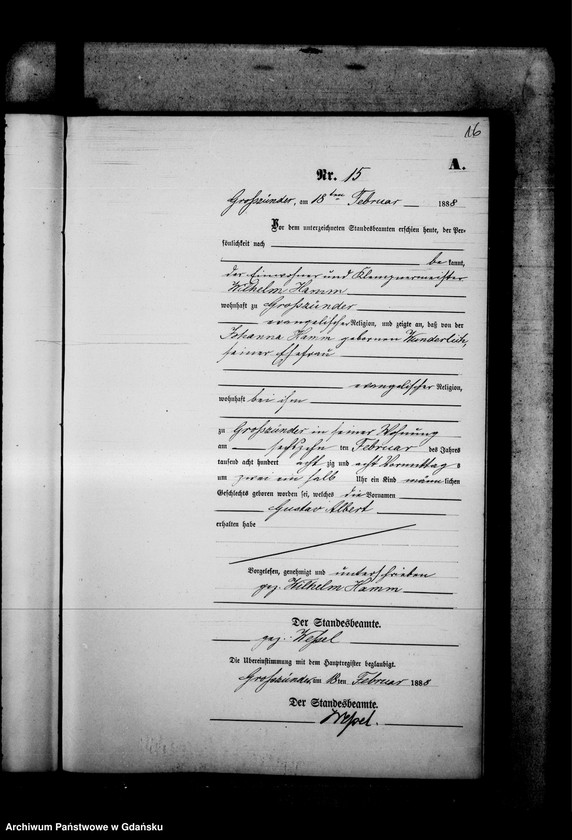 16
A.
Nr. 15
Großzünder, am 18ten Februar 1888
Vor dem unterzeichneten Standesbeamten erschien heute, der Per-
sönlichkeit nach
be kannt,
der Einwohner und Klempnermeister
Wilhelm Hamm
wohnhaft zu Großzünder
evangelischer Religion, und zeigte an, daß von der
Johanna Hamm gebornen Wunderlich,
seiner Ehefrau
evangelischer Religion,
wohnhaft bei ihm
zu Großzünder in seiner Wohnung
am sechszehn ten Februar des Jahres
tausend acht hundert acht zig und acht Vormittags
um zwei ein halb Uhr ein Kind männ lichen
Geschlechts geboren worden sei, welches die Vornamen
Gustav Albert
erhalten habe
Vorgelesen, genehmigt und unterschrieben
gez. Wilhelm Hamm
Der Standesbeamte.
gez. Wessel
Die Übereinstimmung mit dem Hauptregister beglaubigt.
Großzünder, am 18ten Februar 1888
Der Standesbeamte.
Wessel.
Archiwum Państwowe w Gdańsku